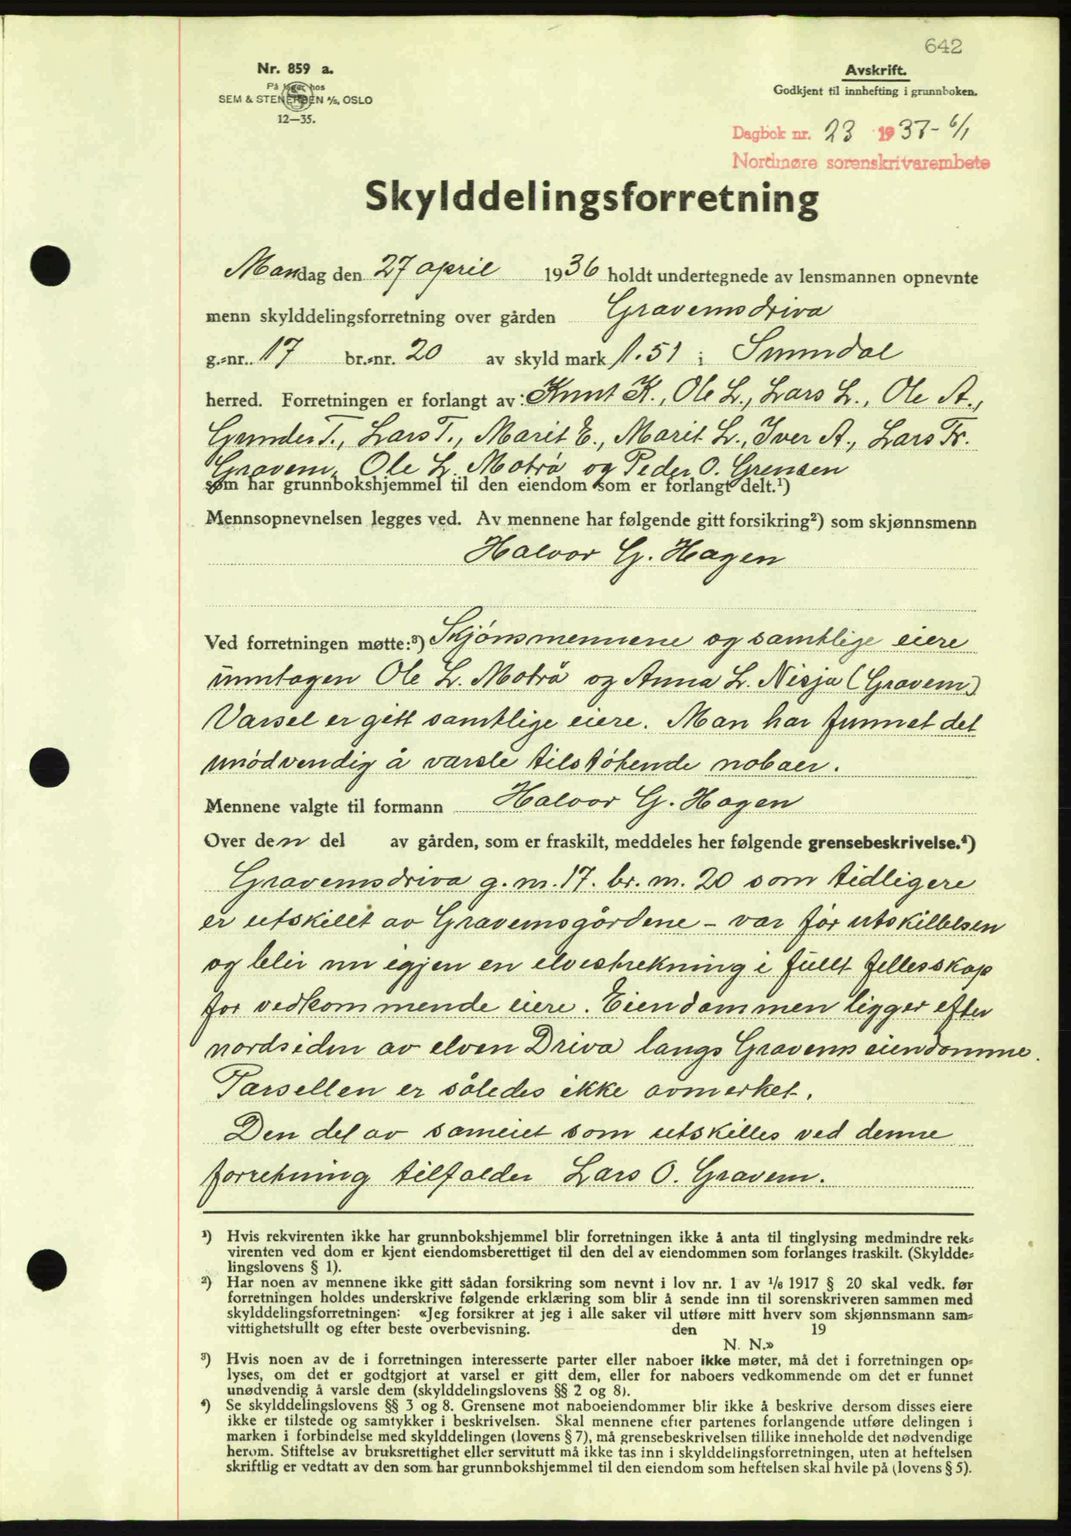 642
Nr. 859 a.
På lager hos
SEM & STENERSEN A/S, OSLO
12—35.
Avskrift.
Godkjent til innhefting i grunnboken.
Dagbok nr. 23 1937 - 6/1
Nordmøre sorenskrivarembete
Skylddelingsforretning
Mandag den 27 april 1936 holdt undertegnede av lensmannen opnevnte
menn skylddelingsforretning over gården Gravemsdriva
g.-nr. 17 br.-nr. 20 av skyld mark 1.51 i Sunndal
herred. Forretningen er forlangt av: Knut K., Ole L., Lars L., Ole A.,
Gunder T., Lars T., Marit E., Marit L., Iver A., Lars Fr.
Gravem, Ole L. Moträ og Peder O. Grensen
som har grunnbokshjemmel til den eiendom som er forlangt delt.¹)
Mennsopnevnelsen legges ved. Av mennene har følgende gitt forsikring²) som skjønnsmenn
Halvor G. Hagen
Ved forretningen møtte:³) Skjönsmennene og samtlige eiere
unntagen Ole L. Moträ og Anna L. Nisja (Gravem)
Varsel er gitt samtlige eiere. Man har funnet det
unödvendig å varsle tilstötende naboer.
Mennene valgte til formann Halvor G. Hagen
Over den del av gården, som er fraskilt, meddeles her følgende grensebeskrivelse.⁴)
Gravemsdriva g. nr. 17. br. nr. 20 som tidligere
er utskillt av Gravemsgårdene - var för utskillelsen
og blir nu igjen en elvestrekning i fullt fellesskap
for vedkommende eiere. Eiendommen ligger efter
nordsiden av elven Driva langs Gravemseiendomme.
Parsellen er således ikke avmerket.
Den del av sameiet som utskilles ved denne
forretning tilfalder Lars O. Gravem.
¹) Hvis rekvirenten ikke har grunnbokshjemmel blir forretningen ikke å anta til tinglysing medmindre rek-
virenten ved dom er kjent eiendomsberettiget til den del av eiendommen som forlanges fraskilt. (Skyldde-
lingslovens § 1).
²) Har noen av mennene ikke gitt sådan forsikring som nevnt i lov nr. 1 av 1/6 1917 § 20 skal vedk. før
forretningen holdes underskrive følgende erklæring som blir å sende inn til sorenskriveren sammen med
skylddelingsforretningen: «Jeg forsikrer at jeg i alle saker vil utføre mitt hverv som skjønnsmann sam-
vittighetsfullt og efter beste overbevisning. den 19
N. N.»
³) Hvis noen av de i forretningen interesserte parter eller naboer ikke møter, må det i forretningen op-
lyses, om det er godtgjort at varsel er gitt dem, eller for naboers vedkommende om det er funnet
unødvendig å varsle dem (skylddelingslovens §§ 2 og 8).
⁴) Se skylddelingslovens §§ 3 og 8. Grensene mot naboeiendommer blir ikke å beskrive dersom disses eiere
ikke er tilstede og samtykker i beskrivelsen. Skal mennene efter partenes forlangende utføre delingen i
marken i forbindelse med skylddelingen (lovens § 7), må grensebeskrivelsen tillike inneholde det nødvendige
herom. Stiftelse av bruksrettighet eller servitutt må ikke tas inn i skylddelingsforretningen, uten at heftelsen
skriftlig er vedtatt av den som har grunnbokshjemmel til den eiendom som heftelsen skal hvile på (lovens § 5).